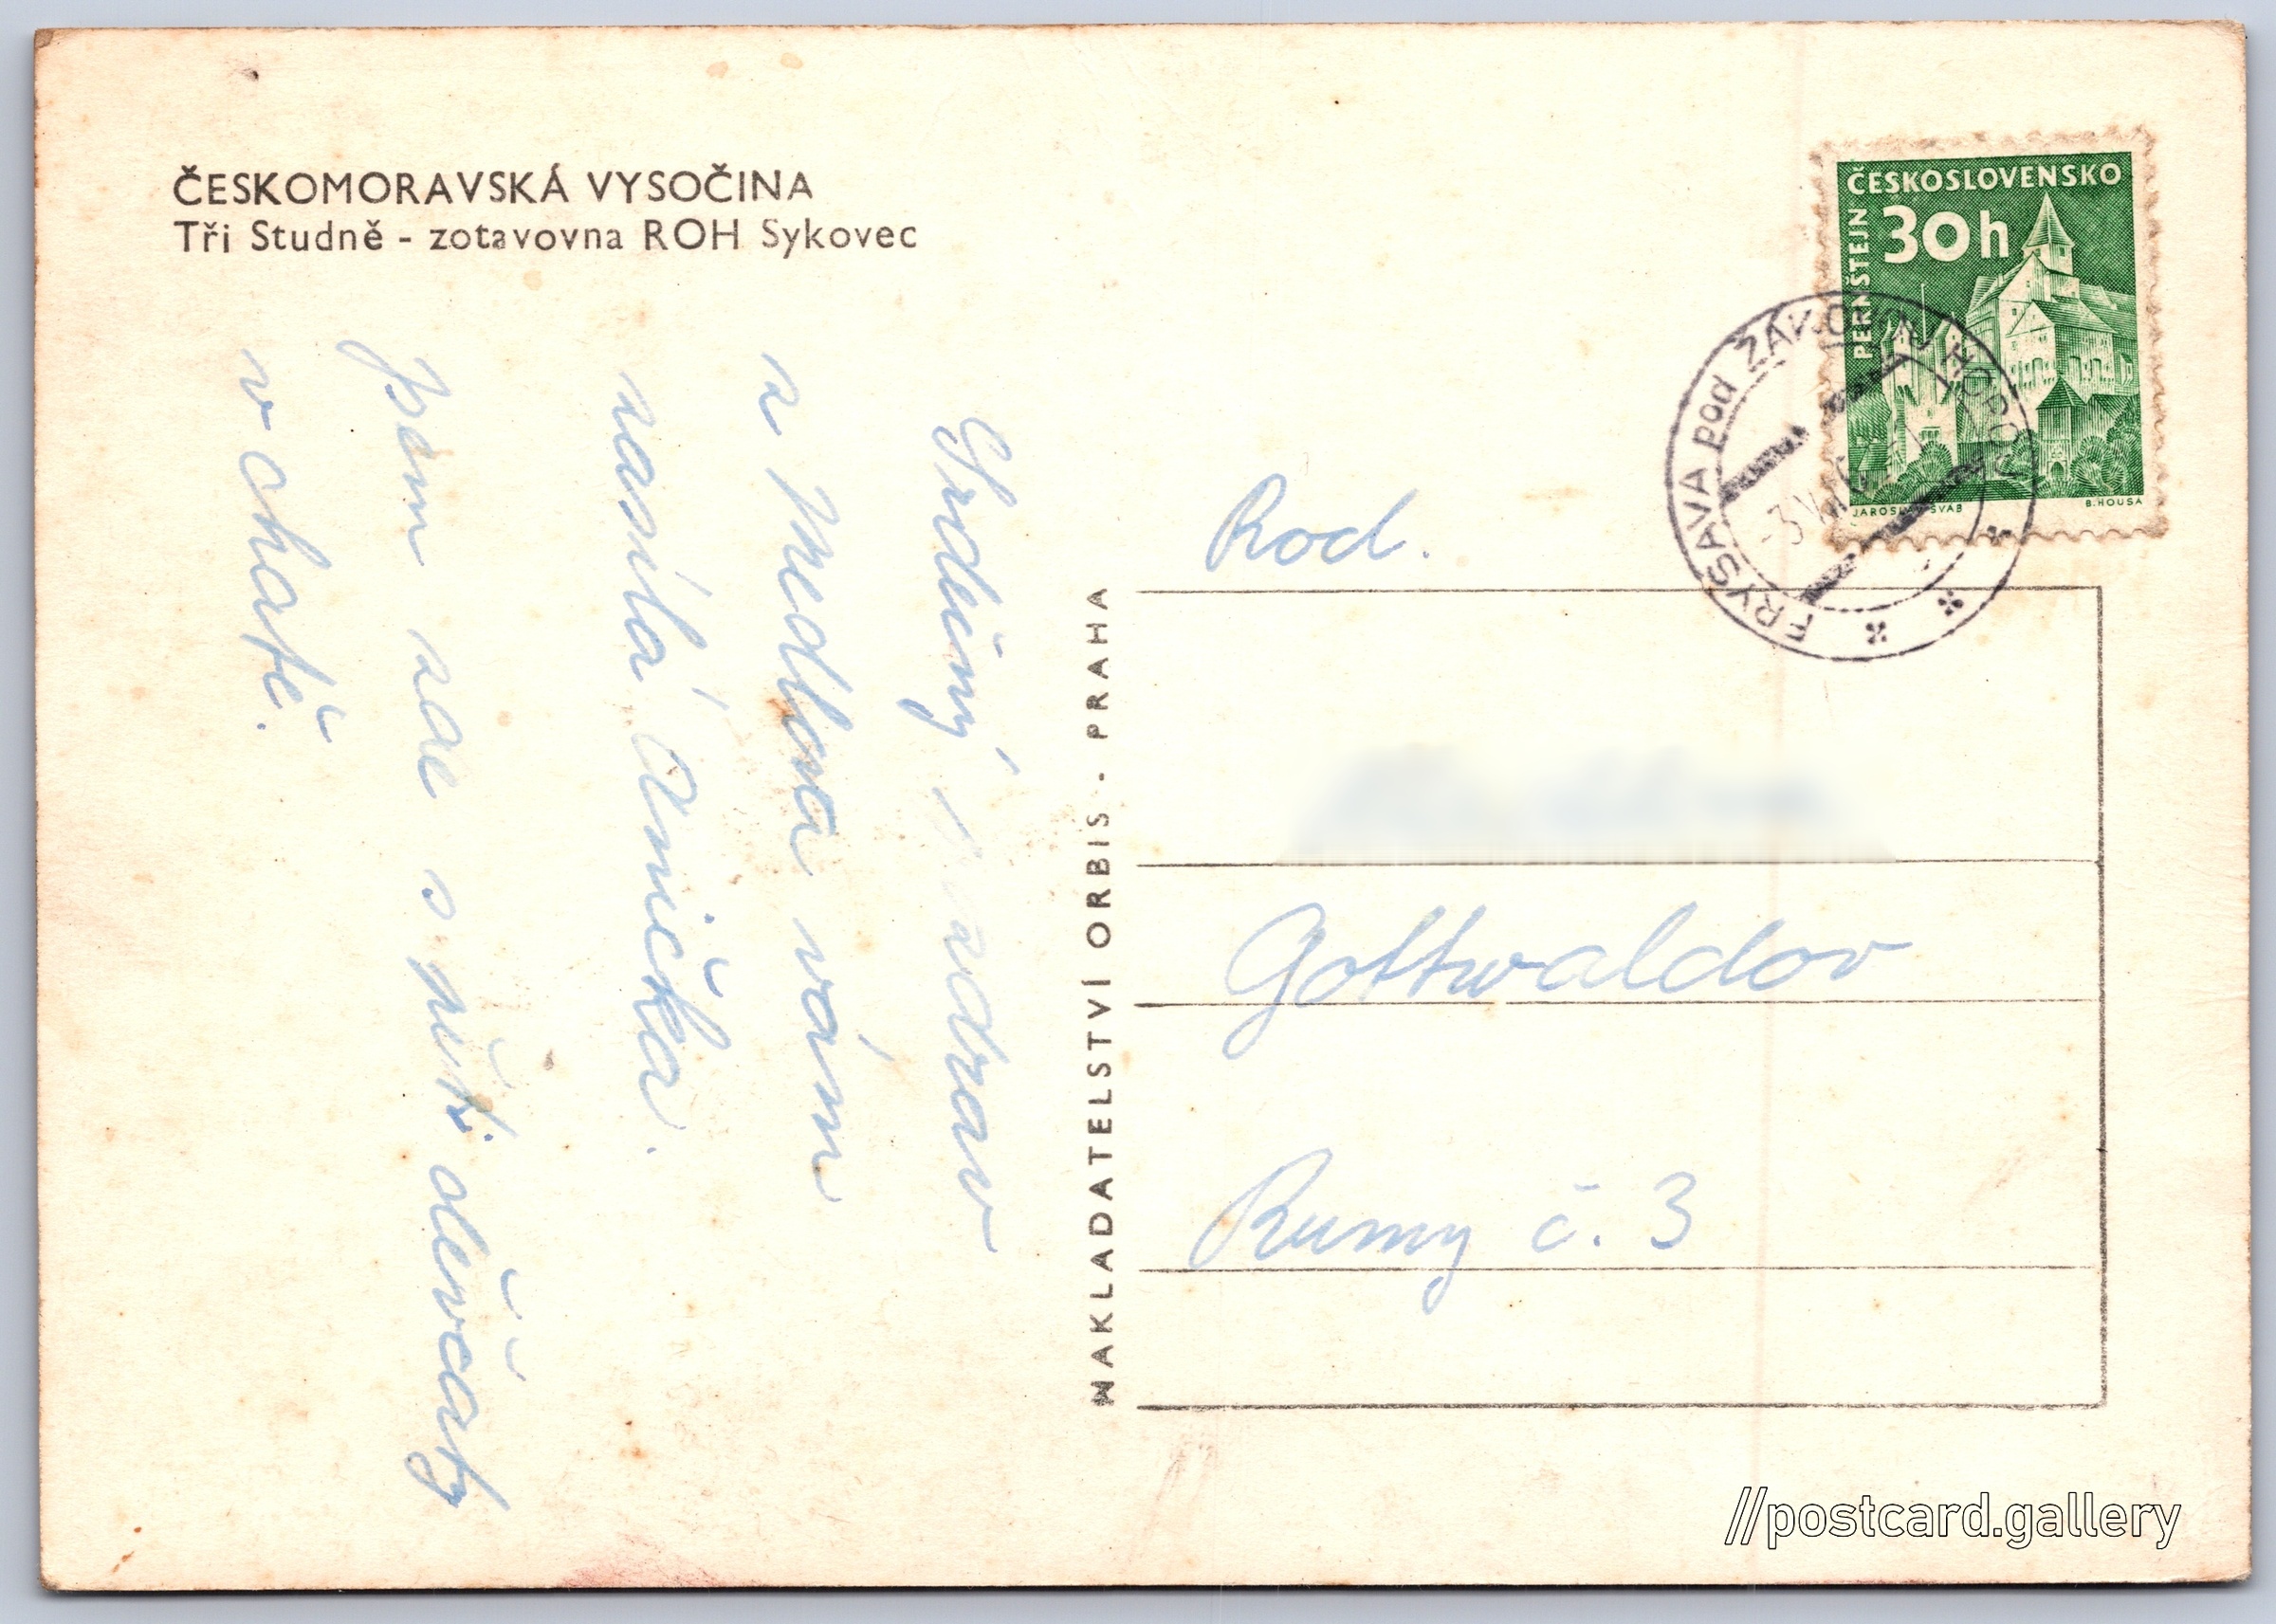 ČESKOMORAVSKÁ VYSOČINA
Tři Studně - zotavovna ROH Sykovec
Srdečný pozdrav
z Medlova vám
zasílá Anička.
Jsem zde s pěti děvčaty
v chatě.
NAKLADATELSTVÍ ORBIS - PRAHA
ČESKOSLOVENSKO
30h
PERNŠTEJN
JAROSLAV ŠVÁB
B. HOUSA
FRYŠAVA pod ŽÁKOVOU HOROU
-3.
Rod.
Gottwaldov
Rumy č. 3
//postcard.gallery